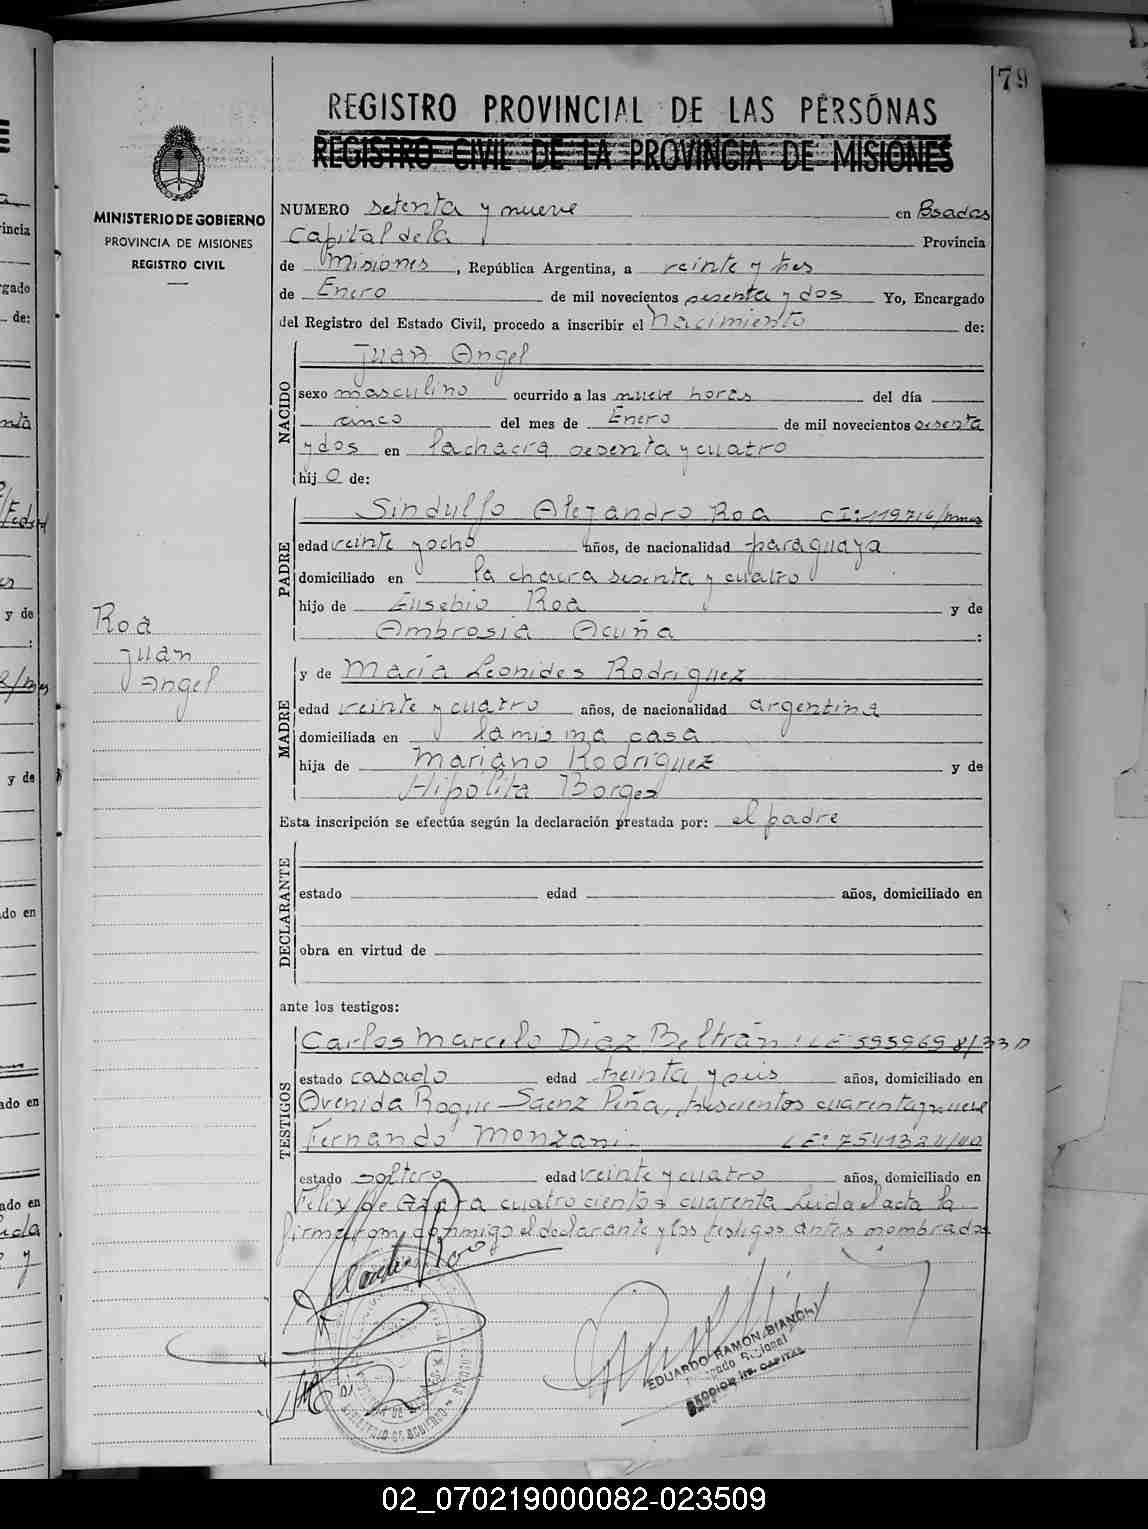 79
REGISTRO PROVINCIAL DE LAS PERSONAS
REGISTRO CIVIL DE LA PROVINCIA DE MISIONES
MINISTERIO DE GOBIERNO
PROVINCIA DE MISIONES
REGISTRO CIVIL
NUMERO setenta y nueve en Posadas
Capital de la Provincia
de Misiones, República Argentina, a veinte y tres
de Enero de mil novecientos sesenta y dos Yo, Encargado
del Registro del Estado Civil, procedo a inscribir el Nacimiento de:
NACIDO
Juan Angel
sexo masculino ocurrido a las nueve horas del día
cinco del mes de Enero de mil novecientos sesenta
y dos en la chacra sesenta y cuatro
hijo de:
PADRE
Sindulfo Alejandro Roa CI: 119716/mnes
edad veinte y ocho años, de nacionalidad paraguaya
domiciliado en la chacra sesenta y cuatro
hijo de Eusebio Roa y de
Ambrosia Acuña :
Roa
Juan
Angel
MADRE
y de María Leonides Rodriguez
edad veinte y cuatro años, de nacionalidad argentina
domiciliada en la misma casa
hija de Mariano Rodríguez y de
Hipolita Borges
Esta inscripción se efectúa según la declaración prestada por: el padre
DECLARANTE
estado edad años, domiciliado en
obra en virtud de
ante los testigos:
TESTIGOS
Carlos Marcelo Díaz Beltrán LE 5959698/33 D
estado casado edad treinta y seis años, domiciliado en
Avenida Roque Saenz Peña, trescientos cuarenta y nueve
Fernando Monzani LE: 7541324/40
estado soltero edad veinte y cuatro años, domiciliado en
Felix de Azara cuatrocientos cuarenta Leida el acta la
firmaron conmigo el declarante y los testigos antes nombrados
EDUARDO RAMON BIANCHI
SECCION CAPITAL
02_070219000082-023509